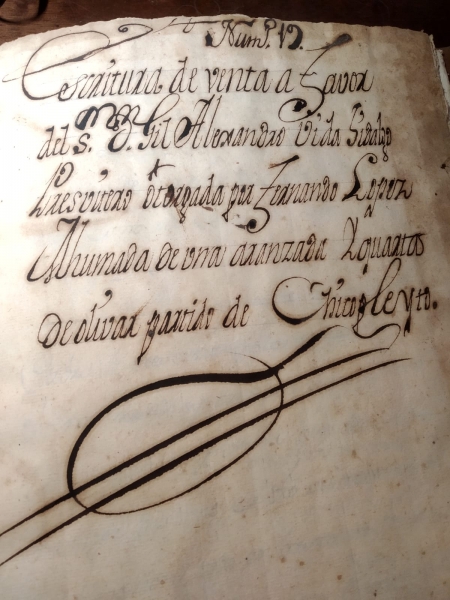 Num.º 19.
Escritura de venta a favor
del S. D. Gil Alexandro Vida Hidalgo
Presvitero otorgada por Fernando Lopez
Ahumada de una aranzada y quarta
de olivar partido de Chicopleyto.